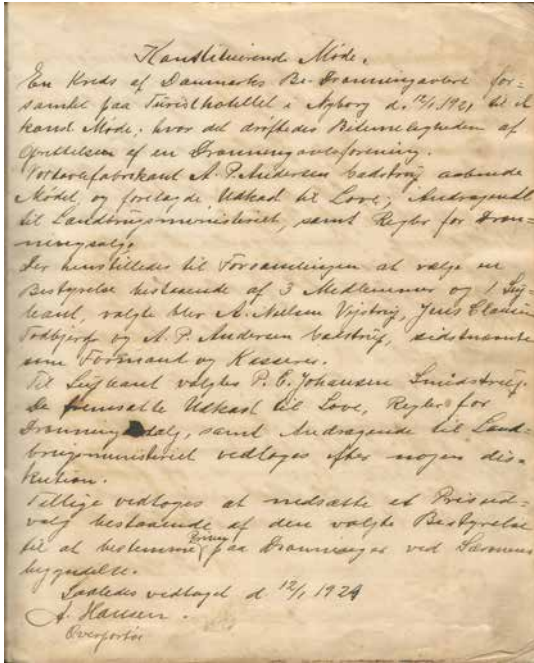 Konstituerende Møde.
En Kreds af Danmarks Bi-Dronningavlere for=
samlet paa Turisthotellet i Nyborg d. 12/1 1921 til et
konst Møde, hvor det drøftedes Betimeligheden af
Oprettelsen af en Dronningavlerforening.
Tavlefabrikant A. P. Andersen Ladstrup aabnede
Mødet, og forelagde Udkast til Love, Andragende
til Landbrugsministeriet, samt Regler for Dron=
ningsalg.
Der henstilledes til Forsamlingen at vælge en
Bestyrelse bestaaende af 3 Medlemmer og 1 Sup=
leant, valgte blev A. Nielsen Vejstrup, Jens Clausen
Todbjerg og A. P. Andersen Ladstrup, sidstnævnte
som Formand og Kasserer.
Til Supleant valgtes P. E. Johansen Smidstrup.
De fremsatte Udkast til Love, Regler for
Dronningsalg, samt Andragende til Land=
brugsministeriet vedtoges efter nogen dis=
kution.
Tillige vedtoges at nedsætte et Prisud=
valg bestaaende af den valgte Bestyrelse
til at bestemme Prisen paa Dronninger ved Sæsonens
begyndelse.
Saaledes vedtaget d 12/1 1921
A. Hansen.